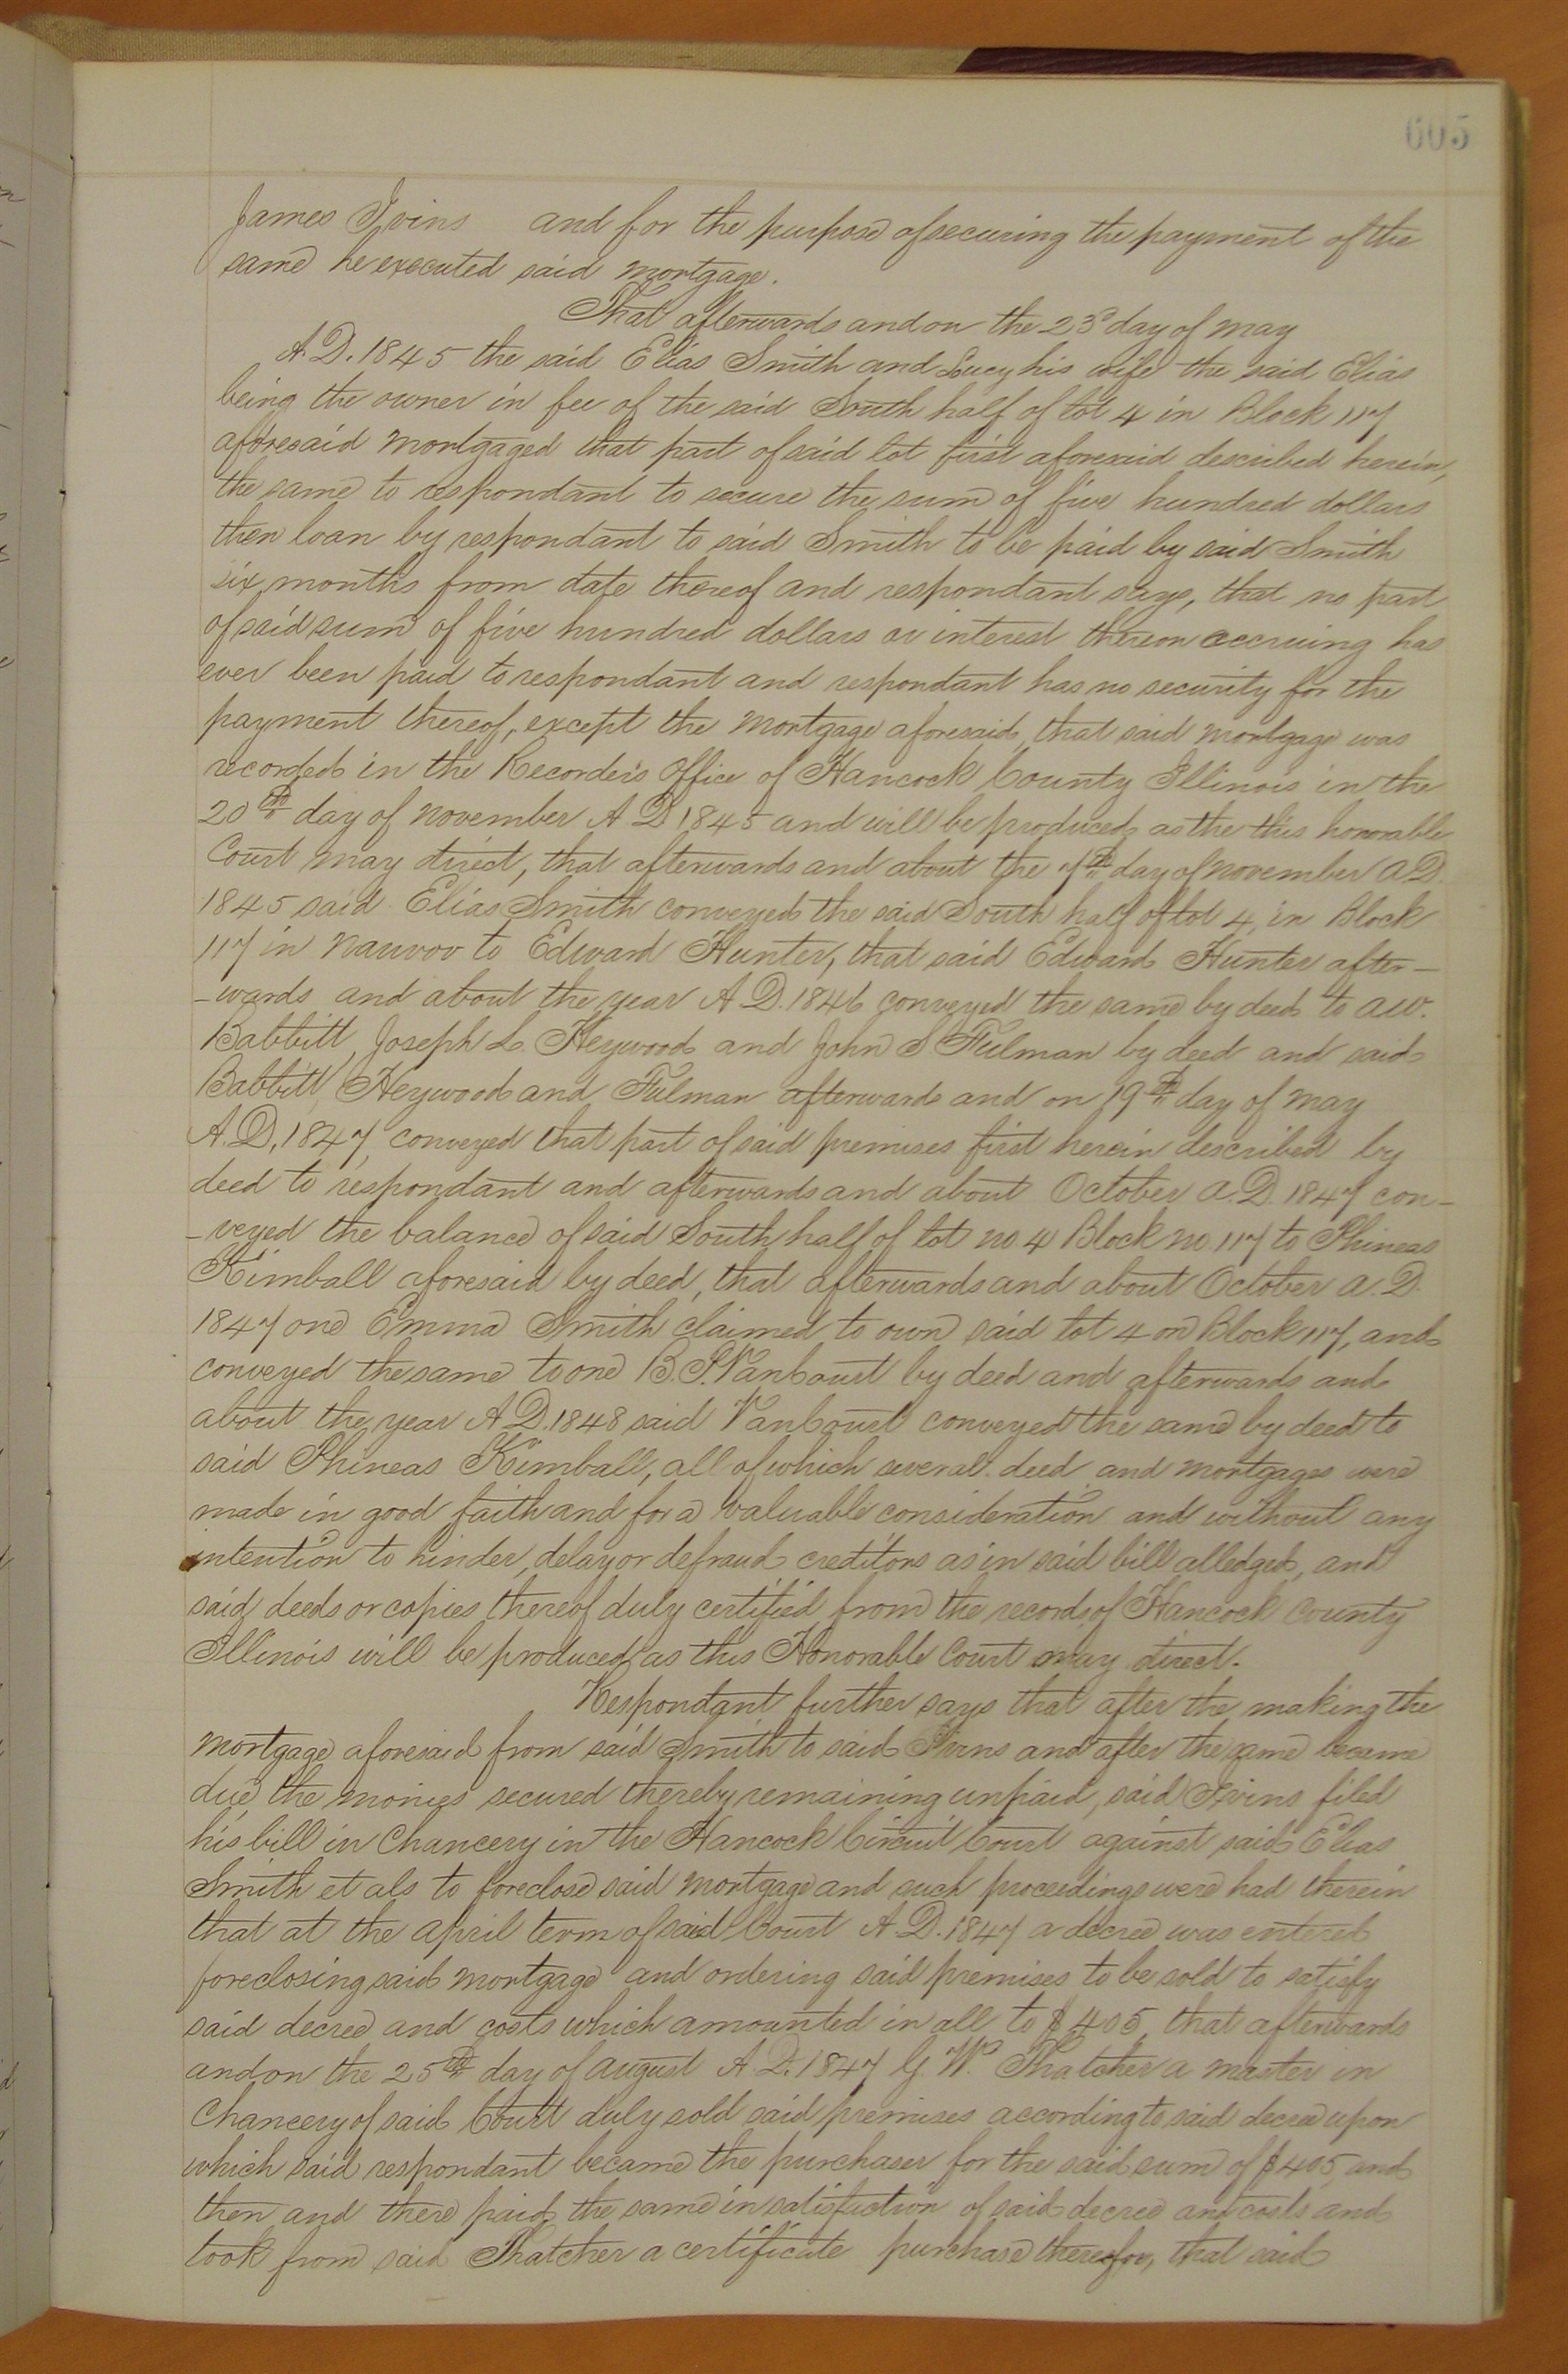 605
James Ivins and for the purpose of securing the payment of the
same he executed said mortgage.
That afterwards and on the 23d day of may
A.D. 1845 the said Elias Smith and Lucy his wife the said Elias
being the owner in fee of the said South half of lot 4 in Block 117
aforesaid mortgaged that part of said lot first aforesaid described herein,
the same to respondant to secure the sum of five hundred dollars
then loan by respondant to said Smith to be paid by said Smith
six months from date thereof and respondant says, that no part
of said sum of five hundred dollars or interest thereon accruing has
ever been paid to respondant and respondant has no security for the
payment thereof, except the mortgage aforesaid, that said mortgage was
recorded in the Recorders Office of Hancock County Illinois in the
20th day of November A.D 1845 and will be produced as the this honorable
Court may direct, that afterwards and about the 7th day of November A.D.
1845 said Elias Smith conveyed the said South half of lot 4, in Block
117 in Nauvoo to Edward Hunter, that said Edward Hunter after-
-wards and about the year A.D. 1846 conveyed the same by deed to A.W.
Babbitt, Joseph L. Heywood and John S Fulman by deed and said
Babbitt, Heywood and Fulman afterwards and on 19th day of may
A.D. 1847, conveyed that part of said premises first herein described by
deed to respondant and afterwards and about October A.D. 1847 con-
-veyed the balance of said South half of lot no 4 Block no 117 to Phineas
Kimball aforesaid by deed, that afterwards and about October A.D.
1847 one Emma Smith claimed to own said lot 4 on Block 117, and
conveyed the same to one B.P. VanCourt by deed and afterwards and
about the year A.D. 1848 said VanCourt conveyed the same by deed to
said Phineas Kimball, all of which several deed and mortgages were
made in good faith and for a valuable consideration and without any
intention to hinder, delay or defraud creditors as in said bill alledged, and
said deeds or copies thereof duly certified from the records of Hancock County
Illinois will be produced as this Honorable Court may direct.
Respondant further says that after the making the
mortgage aforesaid from said Smith to said Ivins and after the same become
due, the monies secured thereby remaining unpaid, said Ivins filed
his bill in Chancery in the Hancock Circuit Court against said Elias
Smith et als to foreclose said mortgage and such proceedings were had therein
that at the april term of said Court A.D. 1847 a decree was entered
foreclosing said mortgage and ordering said premises to be sold to satisfy
said decree and costs which amounted in all to $405, that afterwards
and on the 25th day of august A.D. 1847 G.W. Thatcher a master in
Chancery of said Court duly sold said premises according to said decree upon
which said respondant became the purchaser for the said sum of $405, and
then and there paid the same in satisfaction of said decree and costs and
took from said Thatcher a certificate purchase therefor, that said